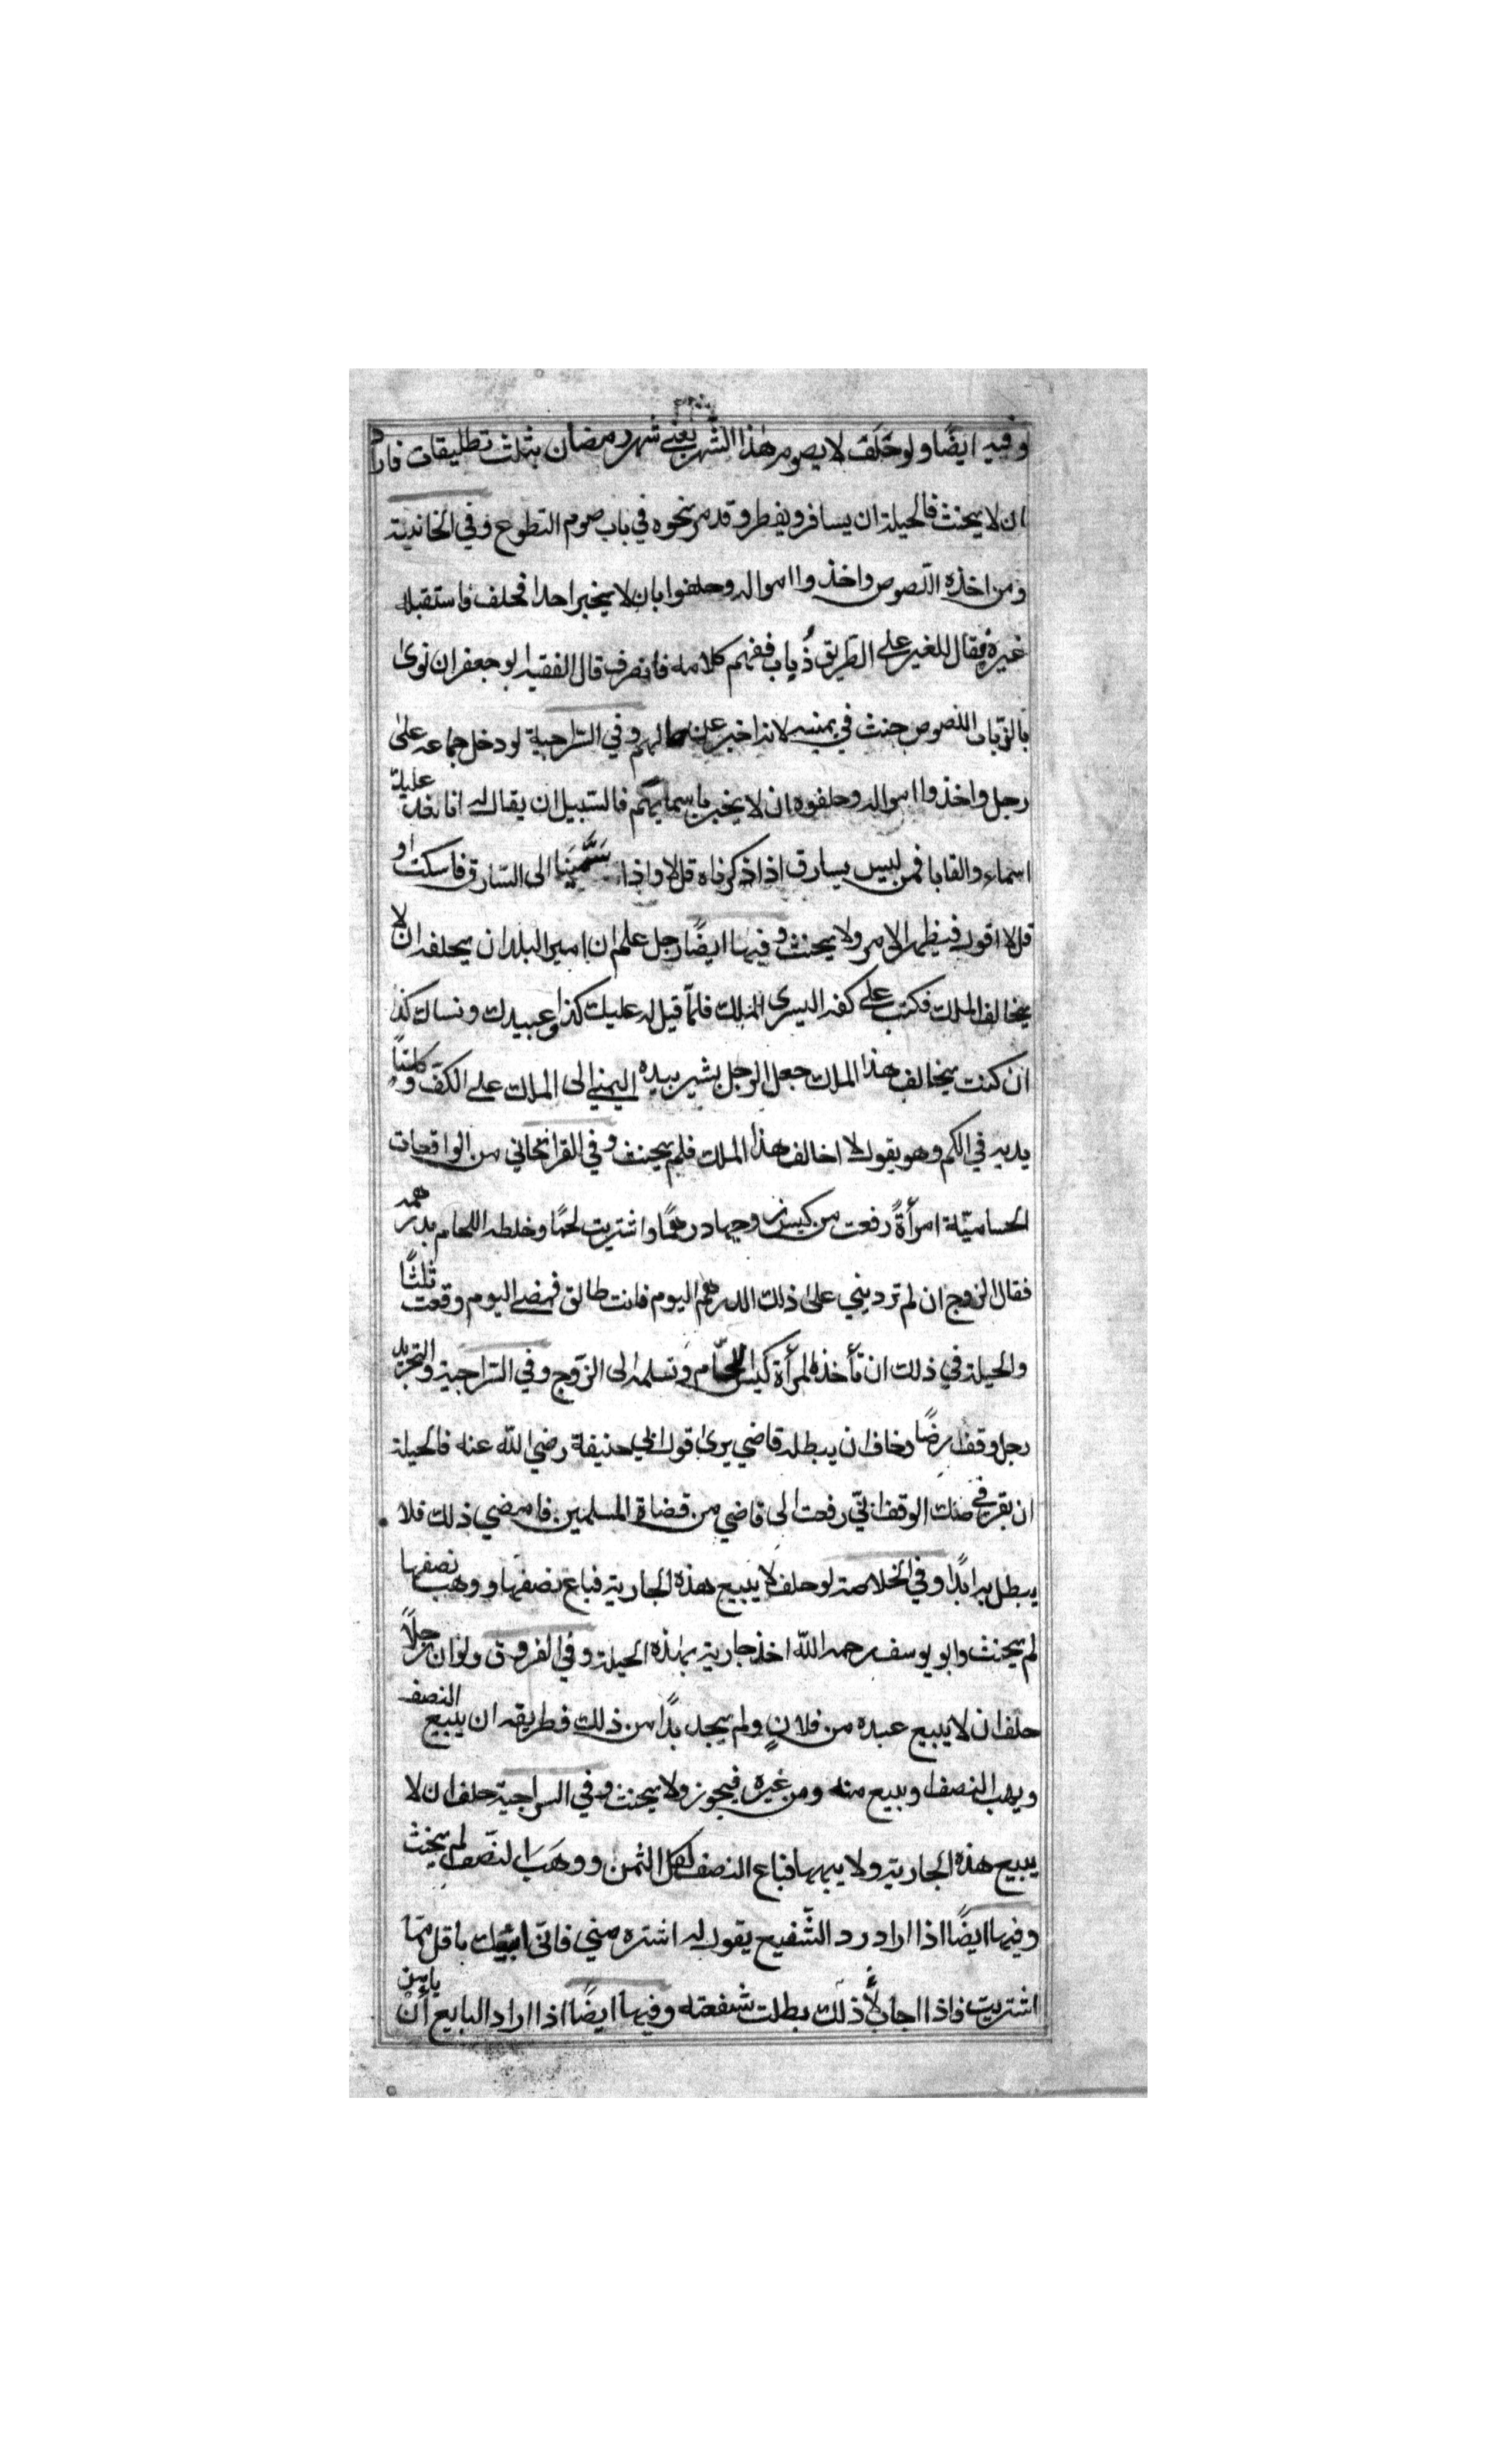 وفيه ايضًا ولو حَلَفَ لا يصوم هٰذا الشهر يعني شهر رمضان بثلث تطليقات فاراد
ان لا يحنث فالحيلة ان يسافر ويفطر وقد مر نحوه في باب صوم التطوع وفي الخانية
ومن اخذه اللصوص واخذوا امواله وحلفوا بان لا يخبر احدا فحلف فاستقبله
غيره فقال للغير على الطريق ذُياب ففهم كلامه فانصرف قال الفقيه ابو جعفر ان نوىٰ
بالذياب اللصوص حنث في يمينه لانه اخبر عن حالهم وفي السّراجية لو دخل جماعه علىٰ
رجل واخذوا امواله وحلفوه ان لا يخبر باسمايهم فالسّبيل ان يقال له انا نعد عليك
اسماء والقابا فمن ليس بسارق اذا ذكرناه قل لا واذا سَمَّيْنا الى السّارق فاسكت او
قل لا اقول فيظهر الامر ولا يحنث وفيها ايضًا رجل علم ان امير البلد ان يحلفه ان لا
يخالف الملك فكتب على كفه اليسرى الملك فلمّا قيل له عليك كذا وعبيدك ونساك كذا
ان كنت يخالف هذا الملك جعل الرجل يشير بيده اليمني الى الملك على الكف وكلتا
يديه في الكم وهو يقول لا اخالف هذا الملك فلم يحنث وفي القراخاني من الواقعات
الحساميّة امرأةٌ رفعت من كيس زوجها درهمًا واشتريت لحمًا وخلطه اللحام بدرهمه
فقال الزوج ان لم ترديني علىٰ ذلك الدرهم اليوم فانت طالق فمضى اليوم وقعت ثلثًا
والحيلة في ذلك ان تأخذ المرأة كيس اللحّام وتسلمه الى الزّوج وفي السّراجية والتجريد
رجل وقف ارضًا وخاف ان يبطله قاضي يرىٰ قول ابي حنيفة رضي اللّه عنه فالحيلة
ان يقر في صك الوقف انّي رفعت الى قاضي من قضاة المسلمين فامضي ذلك فلا
يبطل به ابدًا وفي الخلاصة لو حلف لا يبيع هذه الجارية فباع نصفها ووهب نصفها
لم يحنث وابو يوسف رحمه اللّه اخذ جارية بهذه الحيلة وفي الفروق ولو ان رجلًا
حلف ان لا يبيع عبده من فلانٍ ولم يجد بدًا من ذلك فطريقه ان يبيع النصف
ويهب النصف او يبيع منه ومن غيره فيجوز ولا يحنث وفي السراجية حلف ان لا
يبيع هذه الجارية ولا يهبها فباع النصف بكل الثمن ووهبَ النّصف لم يحنث
وفيها ايضًا اذا اراد رد الشّفيع يقول له اشتره مني فانّي ابيعك باقل ممّا
اشتريت فاذا اجاب لأ ذلك بطلت شفعته وفيها ايضًا اذا اراد البايع ان يامن